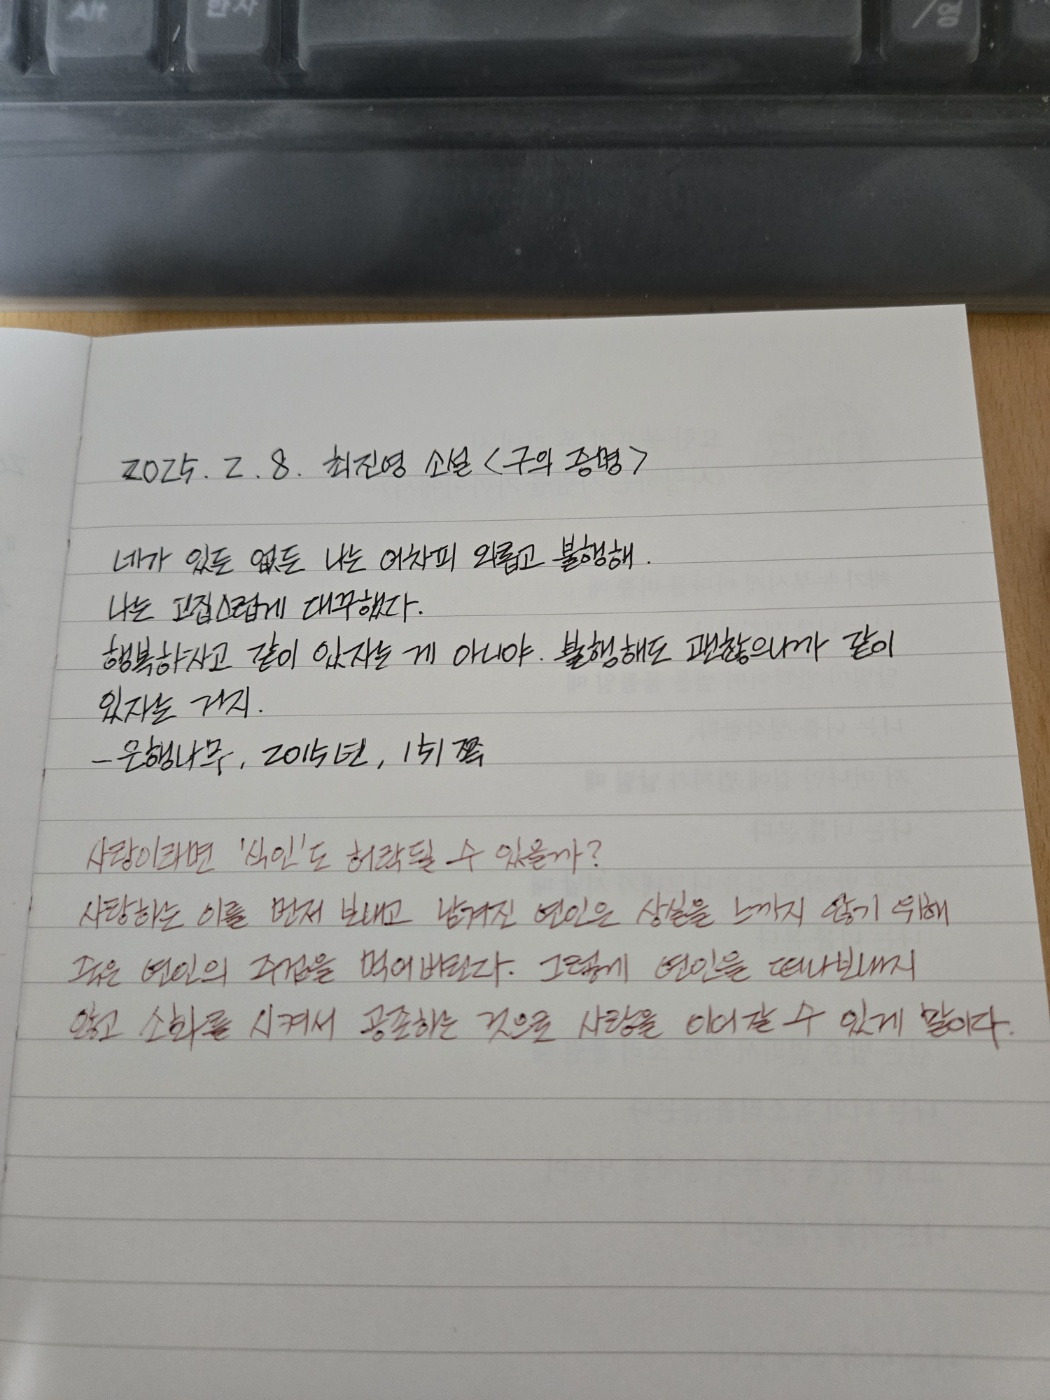 Alt 한자 /영
2025. 2. 8. 최진영 소설 <구의 증명>
네가 있든 없든 나는 어차피 외롭고 불행해.
나는 고집스럽게 대꾸했다.
행복하자고 같이 있자는 게 아니야. 불행해도 괜찮으니까 같이
있자는 거지.
- 은행나무, 2015년, 151쪽
사랑이라면 '식인'도 허락될 수 있을까?
사랑하는 이를 먼저 보내고 남겨진 연인은 상실을 느끼지 않기 위해
죽은 연인의 주검을 먹어버린다. 그렇게 연인을 떠나보내지
않고 소화를 시켜서 공존하는 것으로 사랑을 이어갈 수 있게 말이다.